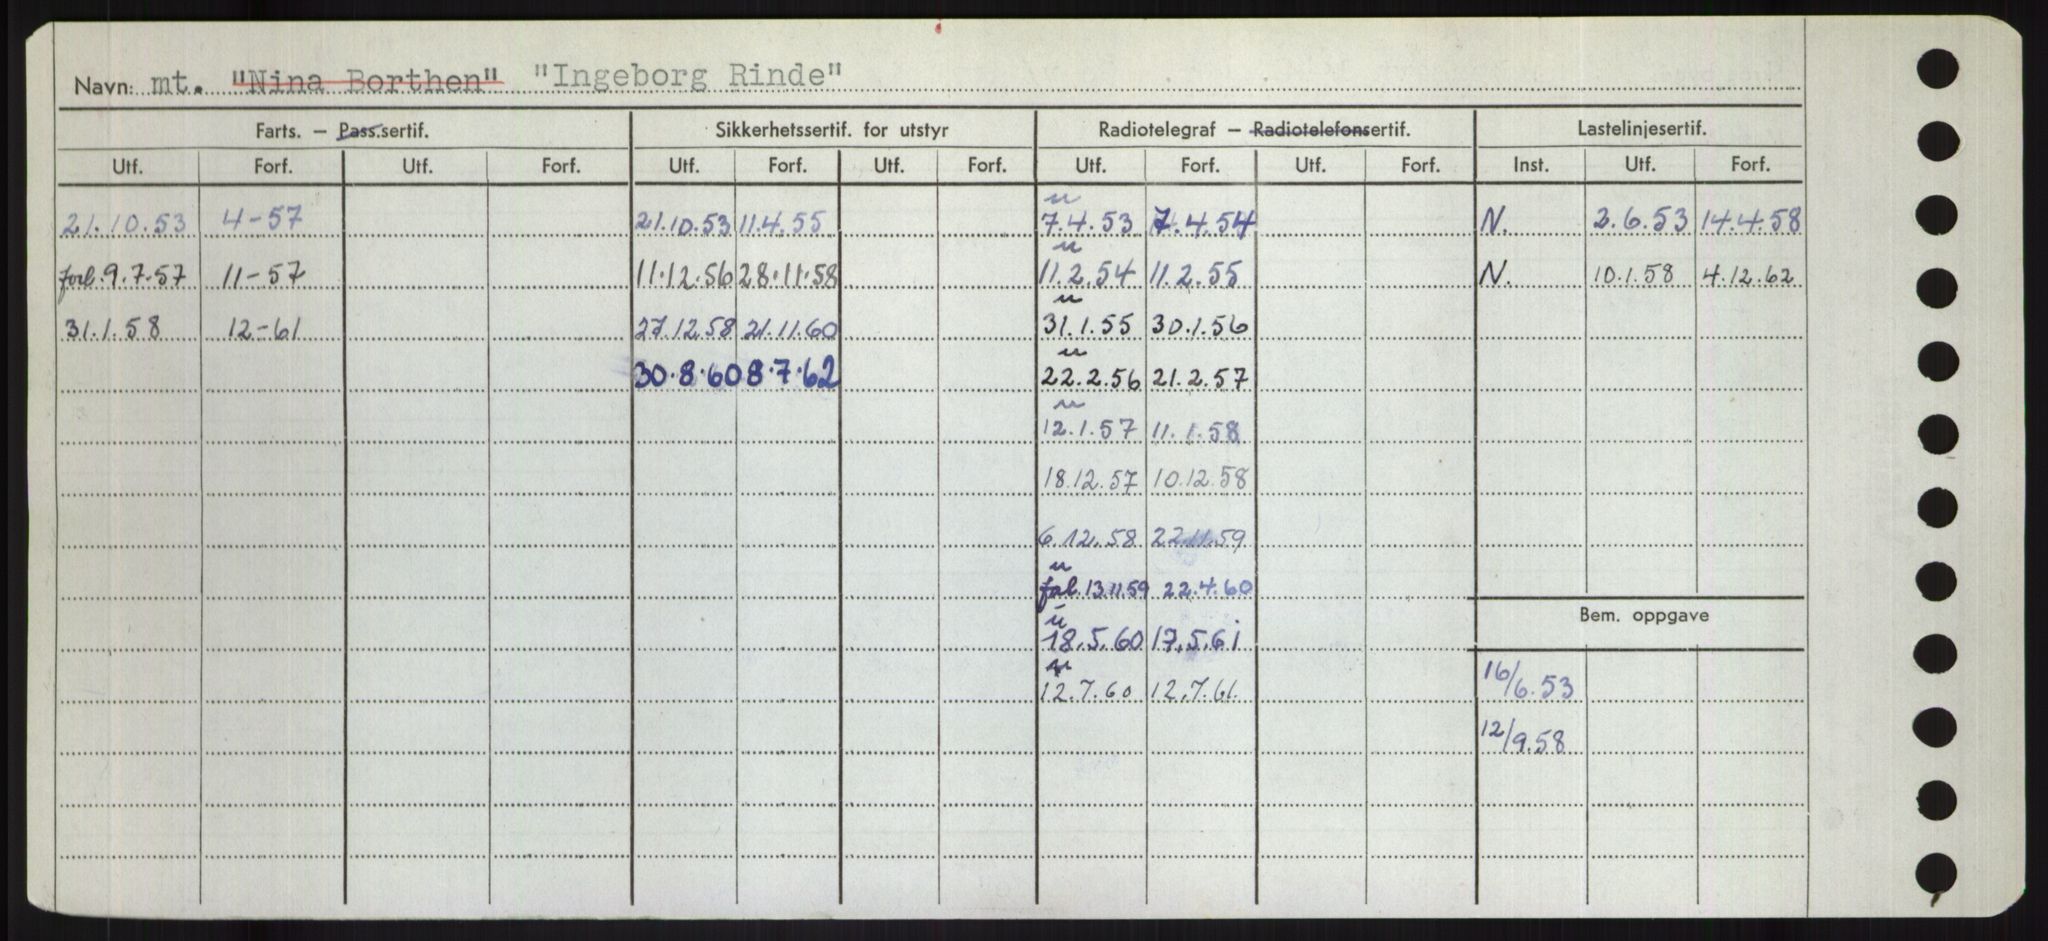 Navn: mt. "Nina Borthen" "Ingeborg Rinde"
Farts. – Pass.sertif. Sikkerhetssertif. for utstyr Radiotelegraf – Radiotelefonsertif. Lastelinjesertif.
Utf. Forf. Utf. Forf. Utf. Forf. Utf. Forf. Utf. Forf. Utf. Forf. Inst. Utf. Forf.
u
21.10.53 4-57 21.10.53 11.4.55 7.4.53 7.4.54 N. 2.6.53 14.4.58
u
forl. 9.7.57 11-57 11.12.56 28.11.58 11.2.54 11.2.55 N. 10.1.58 4.12.62
u
31.1.58 12-61 27.12.58 21.11.60 31.1.55 30.1.56
u
30.8.60 8.7.62 22.2.56 21.2.57
u
12.1.57 11.1.58
18.12.57 10.12.58
6.12.58 22.11.59
u
13.11.59 22.4.60
Bem. oppgave
u
18.5.60 17.5.61
u
12.7.60 12.7.61. 16/6.53
12/9.58